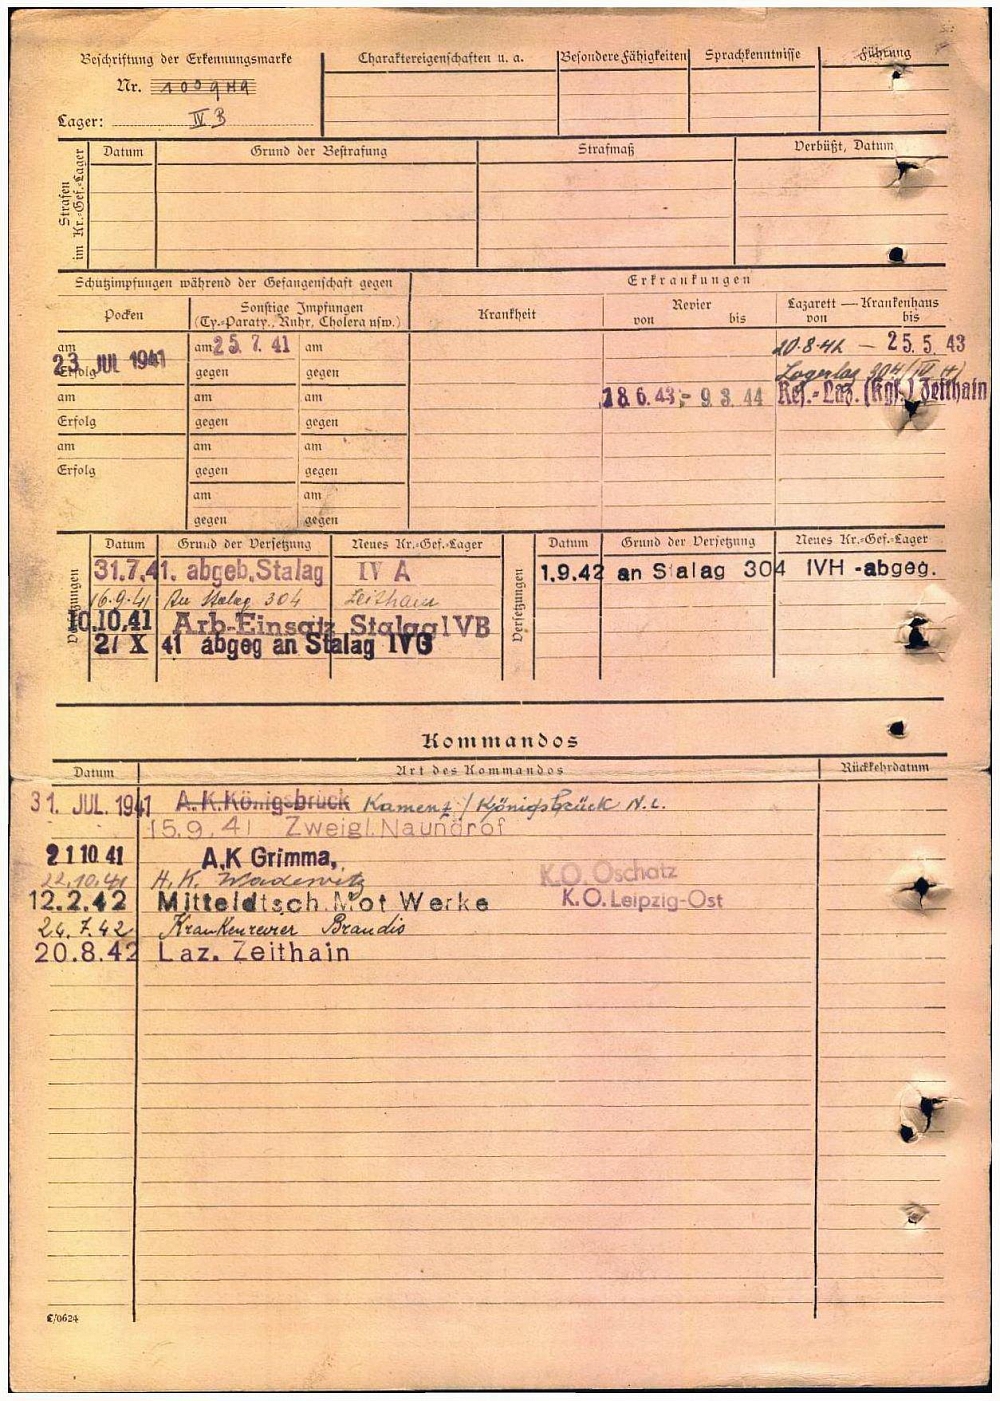 Beschriftung der Erkennungsmarke
Nr.
Lager: IV B
Charaktereigenschaften u. a.
Besondere Fähigkeiten
Sprachkenntnisse
Führung
Strafen im Kr.-Gef.-Lager
Datum
Grund der Bestrafung
Strafmaß
Verbüßt, Datum
Schutzimpfungen während der Gefangenschaft gegen
Erkrankungen
Pocken
Sonstige Impfungen
(Ty.-Paraty., Ruhr, Cholera usw.)
Krankheit
Revier
von bis
Lazarett — Krankenhaus
von bis
am 23 JUL 1941
Erfolg
am 25.7.41 am
gegen gegen
20.8.42 — 25.5.43
304 (IV H)
am am am
18.6.43 - 9.3.44 Res.-Laz. (Kgf.) Zeithain
Erfolg gegen gegen
am am am
Erfolg gegen gegen
am am
gegen gegen
Versetzungen
Datum Grund der Versetzung Neues Kr.-Gef.-Lager
31.7.41. abgeb. Stalag IV A
16.9.41 An Stalag 304 Zeithain
10.10.41 Arb-Einsatz Stalag IVB
21 X 41 abgeg an Stalag IVG
Versetzungen
Datum Grund der Versetzung Neues Kr.-Gef.-Lager
1.9.42 an Stalag 304 IVH -abgeg.
Kommandos
Datum Art des Kommandos Rückkehrdatum
31. JUL 1941 A.K. Königsbrück Kamenz / Königsbrück N.L.
15.9.41 Zweigl. Naundrof
21 10 41 A.K Grimma,
22.10.41 A.K. Wadewitz K.O. Oschatz
12.2.42 Mitteldtsch. Mot Werke K.O. Leipzig-Ost
24.7.42 Krankenrevier Brandis
20.8.42 Laz. Zeithain
C/0624